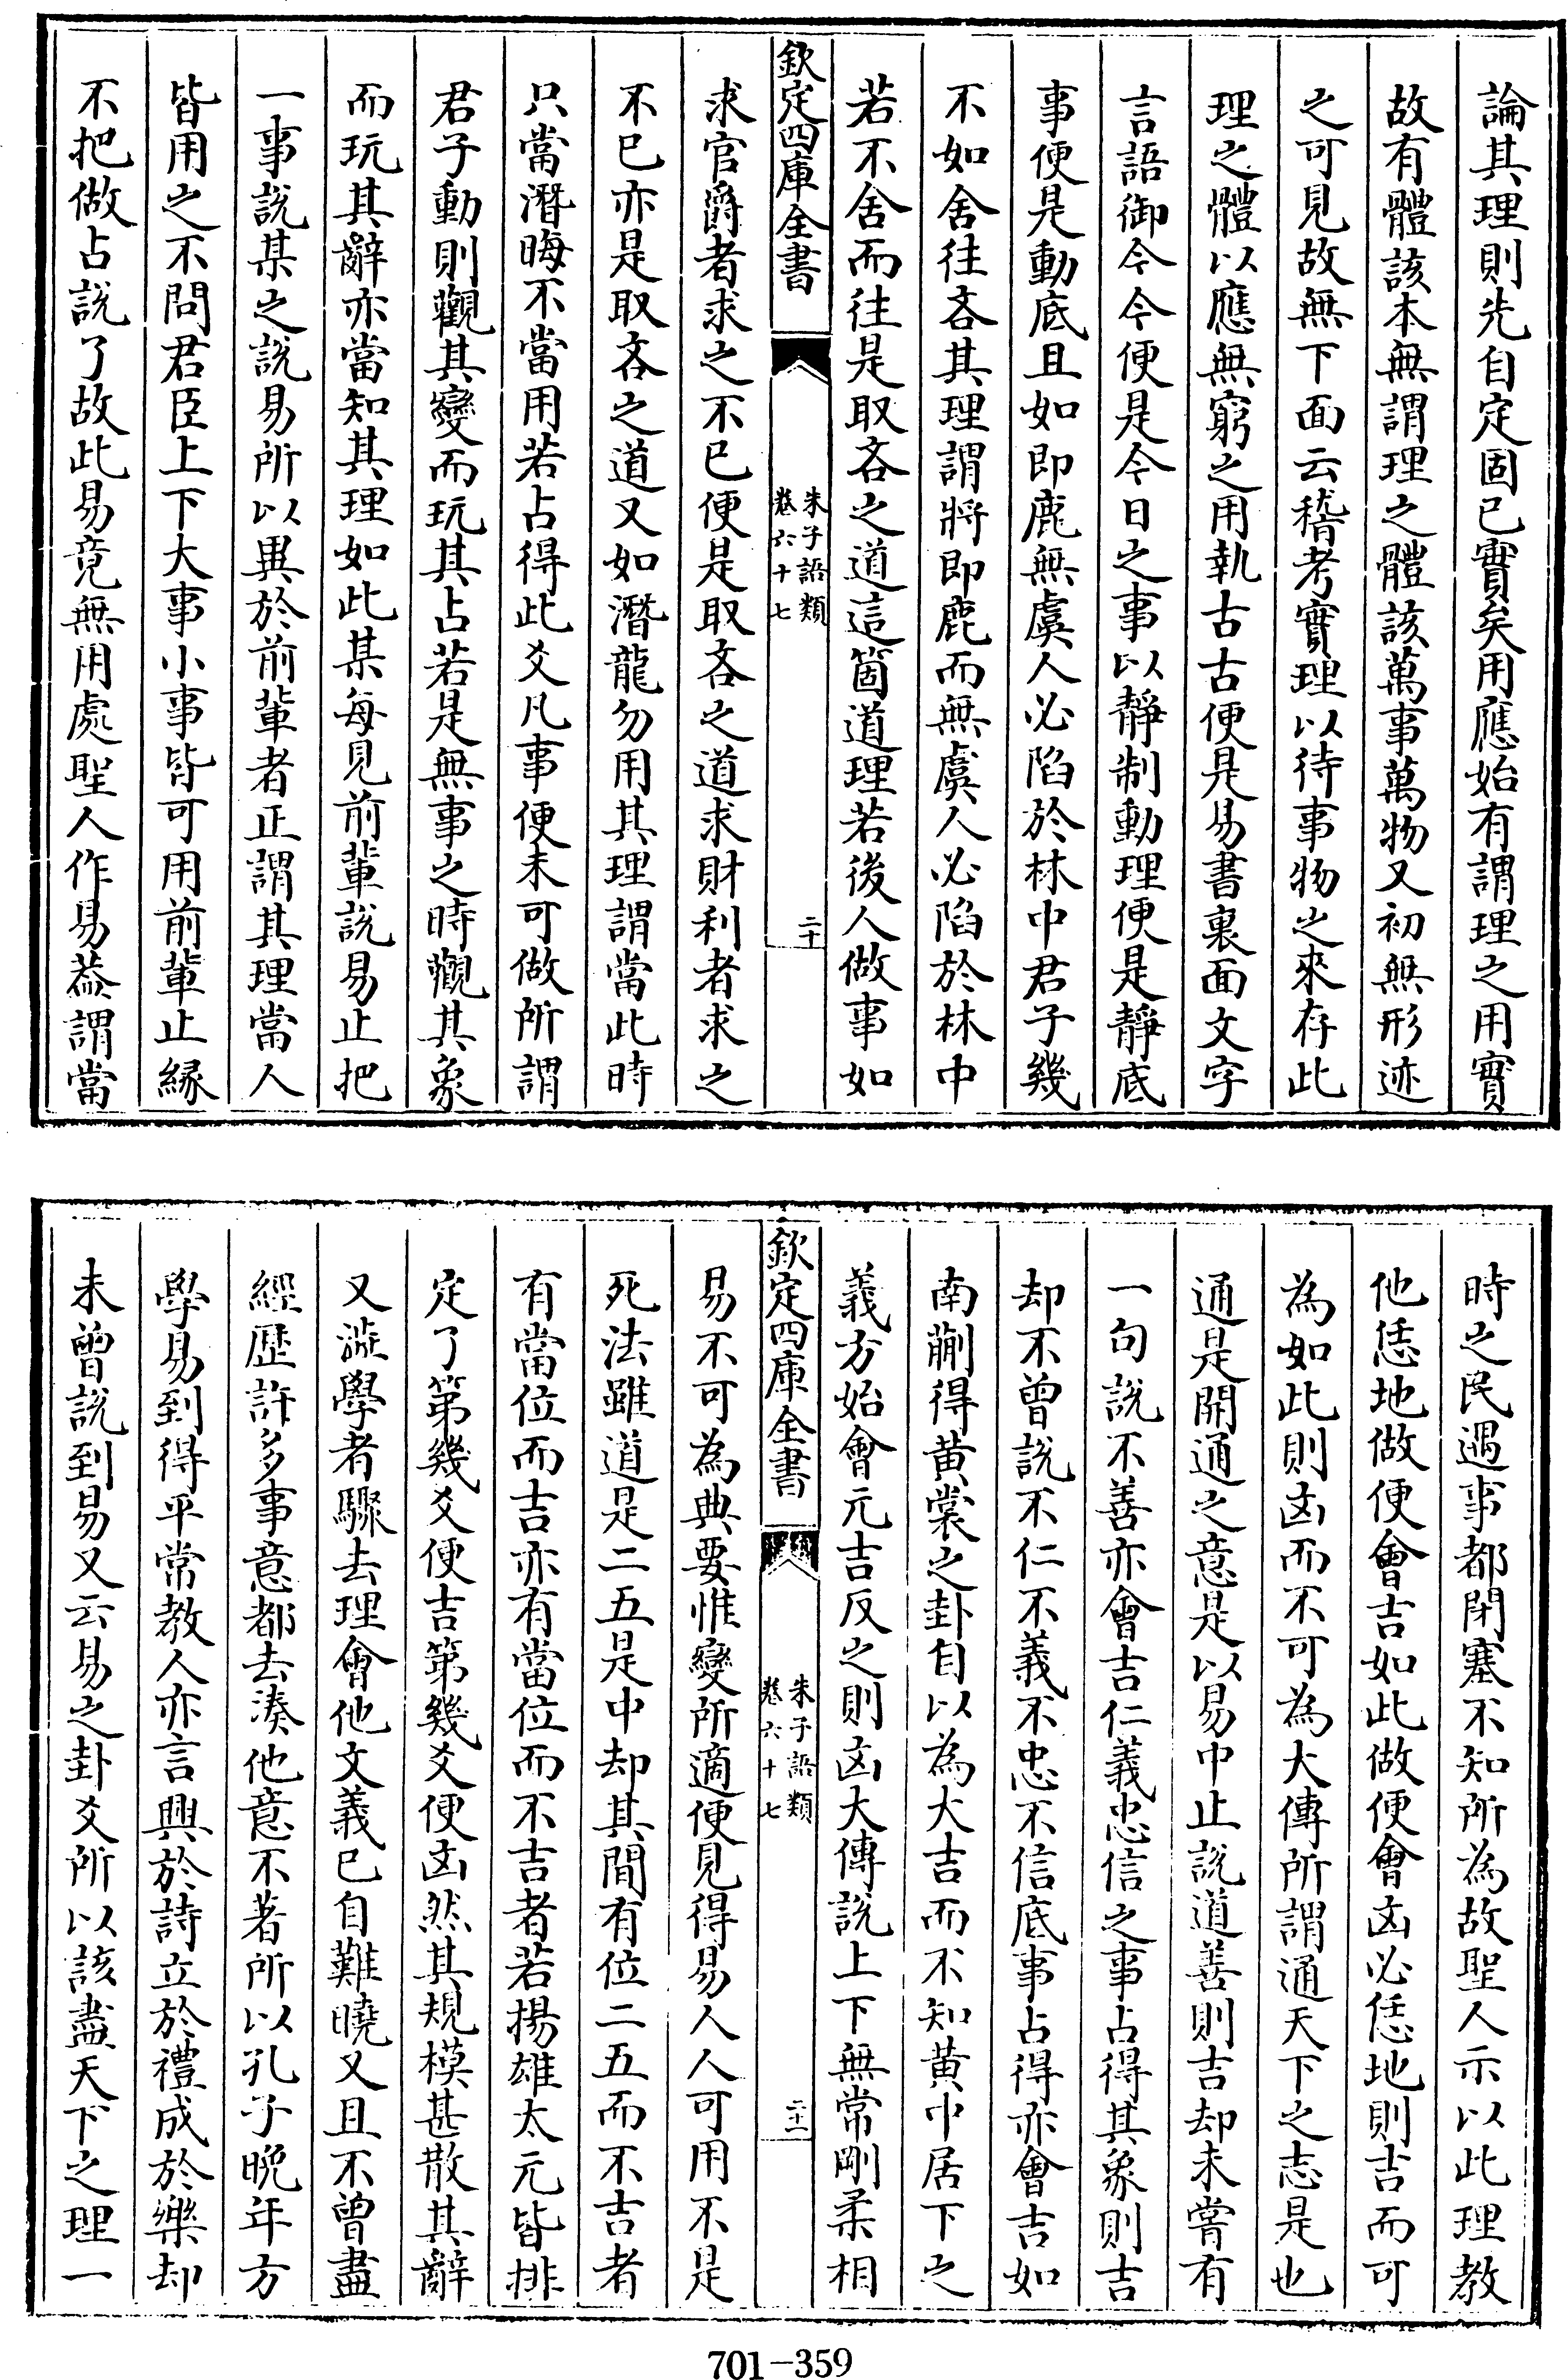 論其理則先自定固已實矣用應始有謂理之用實
故有體該本無謂理之體該萬事萬物又初無形迹
之可見故無下面云稽考實理以待事物之來存此
理之體以應無窮之用執古古便是易書裏面文字
言語御今今便是今日之事以靜制動理便是靜底
事便是動底且如即鹿無虞人必陷於林中君子幾
不如舍往吝其理謂將即鹿而無虞人必陷於林中
若不舍而往是取吝之道這箇道理若後人做事如
欽定四庫全書
朱子語類
卷六十七
二十
求官爵者求之不已便是取吝之道求財利者求之
不已亦是取吝之道又如潛龍勿用其理謂當此時
只當潛晦不當用若占得此爻凡事便未可做所謂
君子動則觀其變而玩其占若是無事之時觀其象
而玩其辭亦當知其理如此某每見前輩說易止把
一事說某之說易所以異於前輩者正謂其理當人
皆用之不問君臣上下大事小事皆可用前輩止緣
不把做占說了故此易竟無用處聖人作易葢謂當
時之民遇事都閉塞不知所為故聖人示以此理教
他恁地做便會吉如此做便會凶必恁地則吉而可
為如此則凶而不可為大傳所謂通天下之志是也
通是開通之意是以易中止說道善則吉却未嘗有
一句說不善亦會吉仁義忠信之事占得其象則吉
却不曾說不仁不義不忠不信底事占得亦會吉如
南蒯得黃裳之卦自以為大吉而不知黃中居下之
義方始會元吉反之則凶大傳說上下無常剛柔相
欽定四庫全書
朱子語類
卷六十七
二十一
易不可為典要惟變所適便見得易人人可用不是
死法雖道是二五是中却其間有位二五而不吉者
有當位而吉亦有當位而不吉者若揚雄太元皆排
定了第幾爻便吉第幾爻便凶然其規模甚散其辭
又澁學者驟去理會他文義已自難曉又且不曾盡
經歷許多事意都去湊他意不著所以孔子晚年方
學易到得平常教人亦言興於詩立於禮成於樂却
未曾說到易又云易之卦爻所以該盡天下之理一
701-359